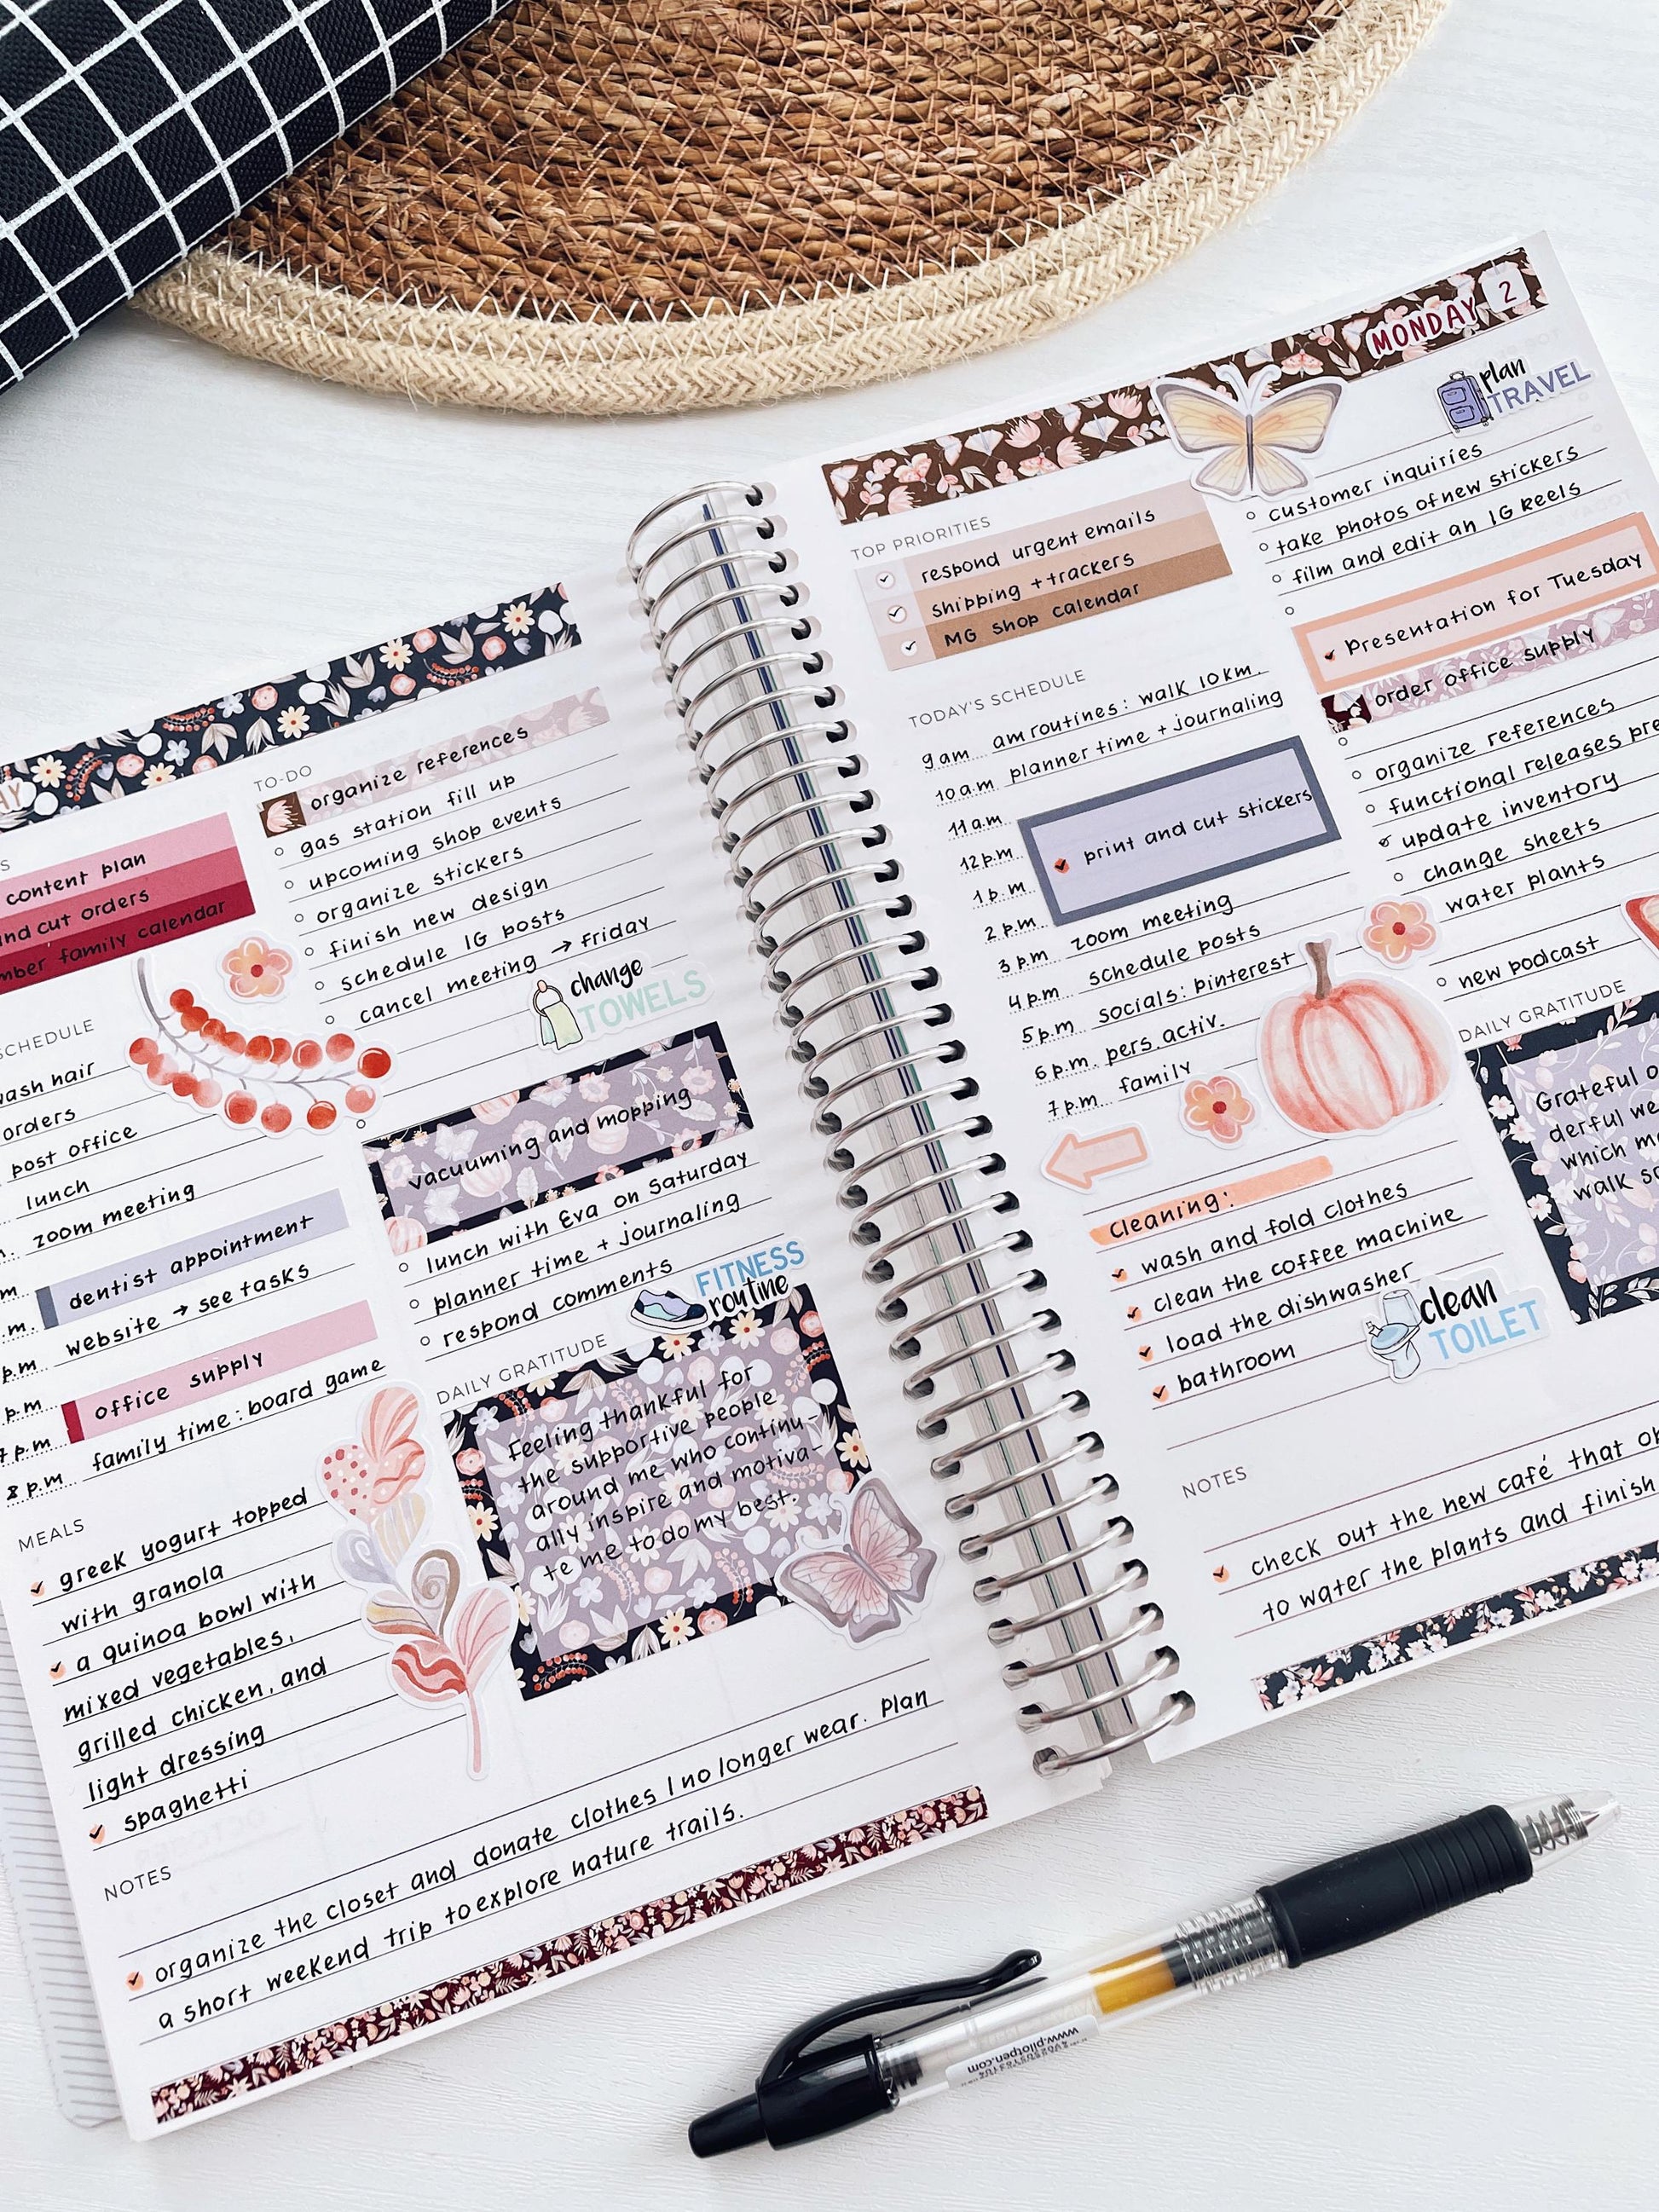 content plan
cut orders
family calendar
SCHEDULE
wash hair
orders
post office
lunch
zoom meeting
dentist appointment
website → see tasks
p.m
office supply
p.m
family time: board game
8 p.m.
MEALS
greek yogurt topped
with granola
a quinoa bowl with
mixed vegetables,
grilled chicken, and
light dressing
spaghetti
TO-DO
organize references
gas station fill up
upcoming shop events
organize stickers
finish new design
schedule IG posts
cancel meeting → Friday
change
TOWELS
vacuuming and mopping
lunch with Eva on Saturday
planner time + journaling
respond comments
FITNESS
routine
DAILY GRATITUDE
Feeling thankful for
the supportive people
around me who continu-
ally inspire and motiva-
te me to do my best.
NOTES
organize the closet and donate clothes I no longer wear. Plan
a short weekend trip to explore nature trails.
MONDAY 2
TOP PRIORITIES
respond urgent emails
shipping + trackers
MG Shop calendar
TODAY'S SCHEDULE
9 am am routines: walk 10 km.
10 a.m planner time + journaling
11 a.m.
12 p.m
print and cut stickers
1 p.m
2 p.m. zoom meeting
3 p.m schedule posts
4 p.m socials: pinterest
5 p.m pers. activ.
6 p.m. family
7 p.m
cleaning:
wash and fold clothes
clean the coffee machine
load the dishwasher
bathroom
clean
TOILET
plan
TRAVEL
customer inquiries
take photos of new stickers
film and edit an IG Reels
Presentation for Tuesday
order office supply
organize references
functional releases pre
update inventory
change sheets
water plants
new podcast
DAILY GRATITUDE
Grateful
derful we
which
walk
NOTES
check out the new café that
to water the plants and finish
www.pilotpen.com